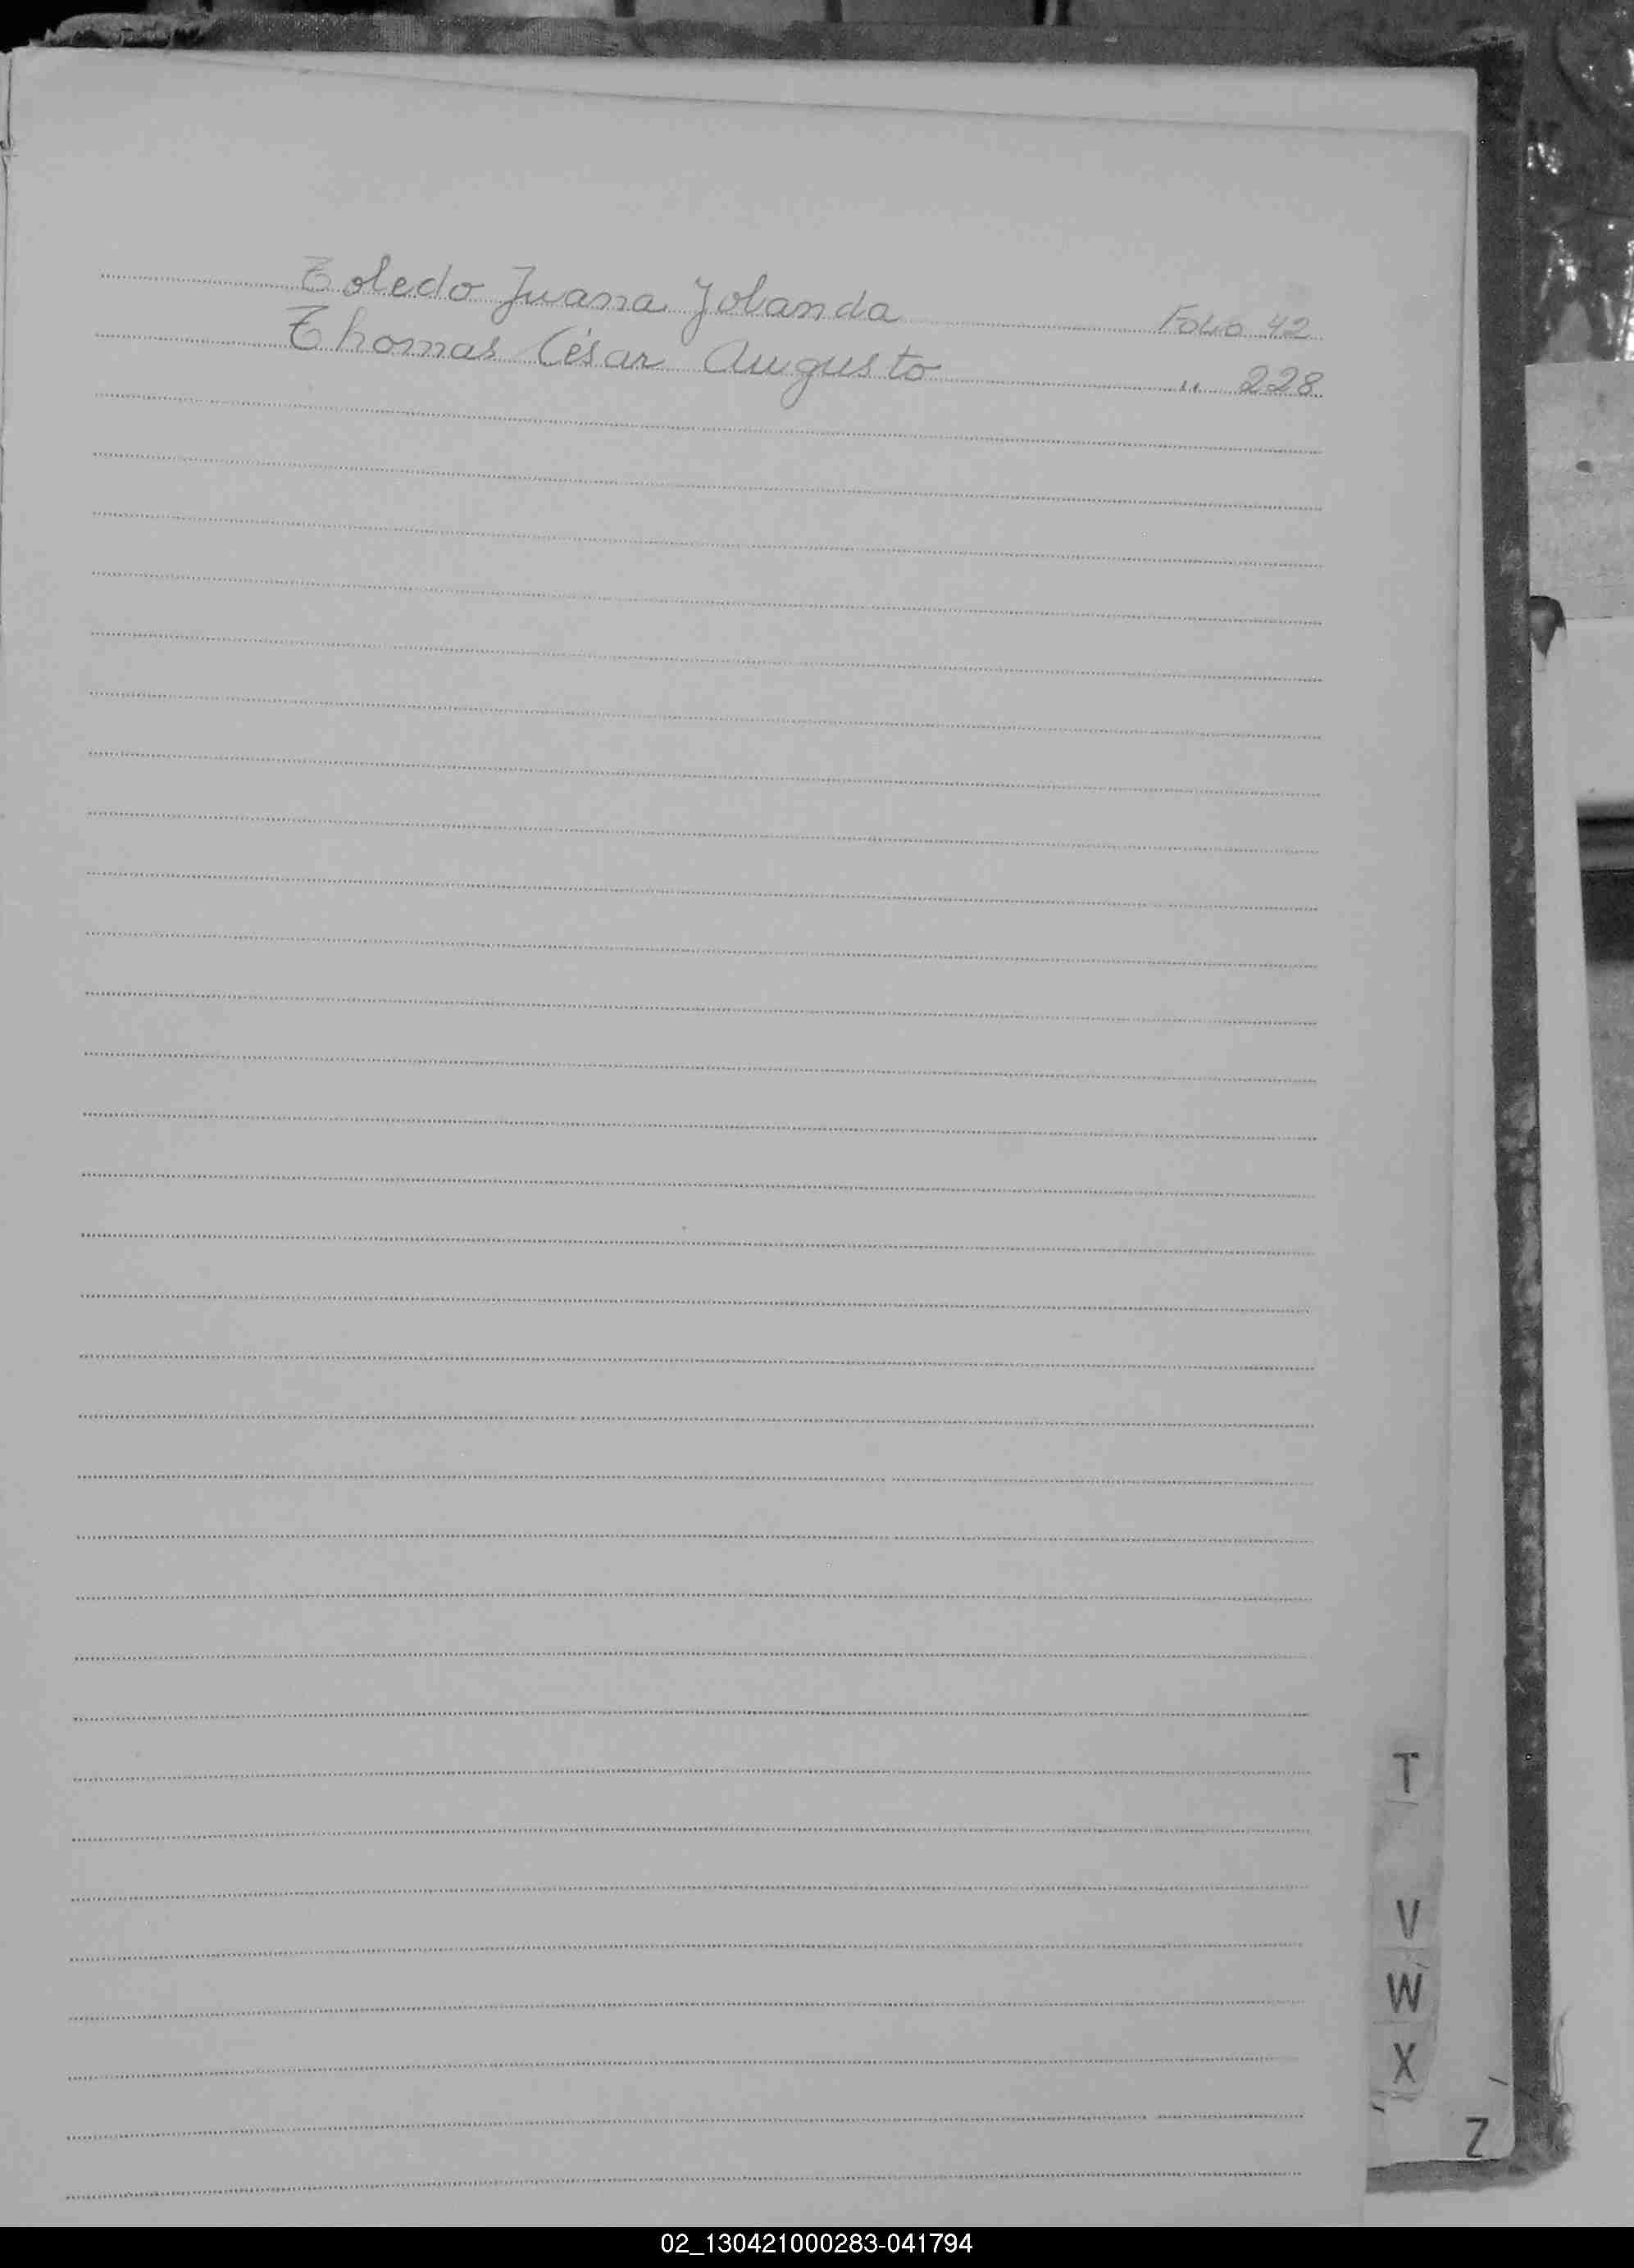 Toledo Juana Jolanda Folio 42
Thomas César Augusto " 228
T
V
W
X
Z
02_130421000283-041794